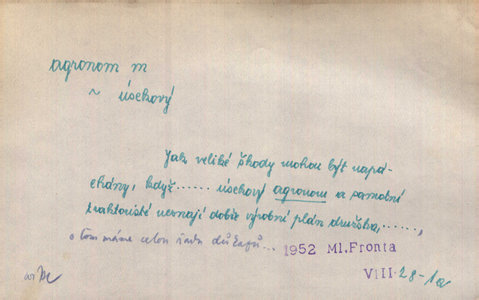 agronom m
~ úsekový
Jak veliké škody mohou být napá-
chány, když...... úsekový agronom a samotní
traktoristé neznají dobře výrobní plán družstva, ......,
o tom máme celou řadu důkazů...
1952 Ml. Fronta
VIII. 28-1a